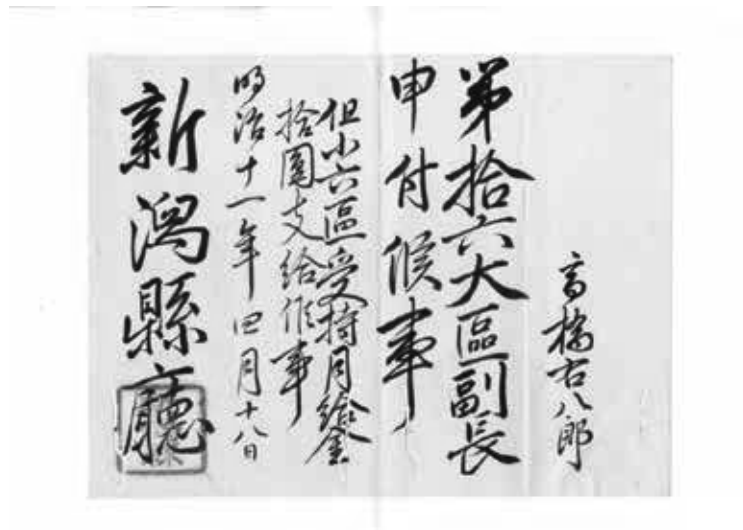 高橋右八郎
第拾六大區副長
申付候事
但小六區受持月給金
拾圓支給候事
明治十一年四月十八日
新潟縣廳